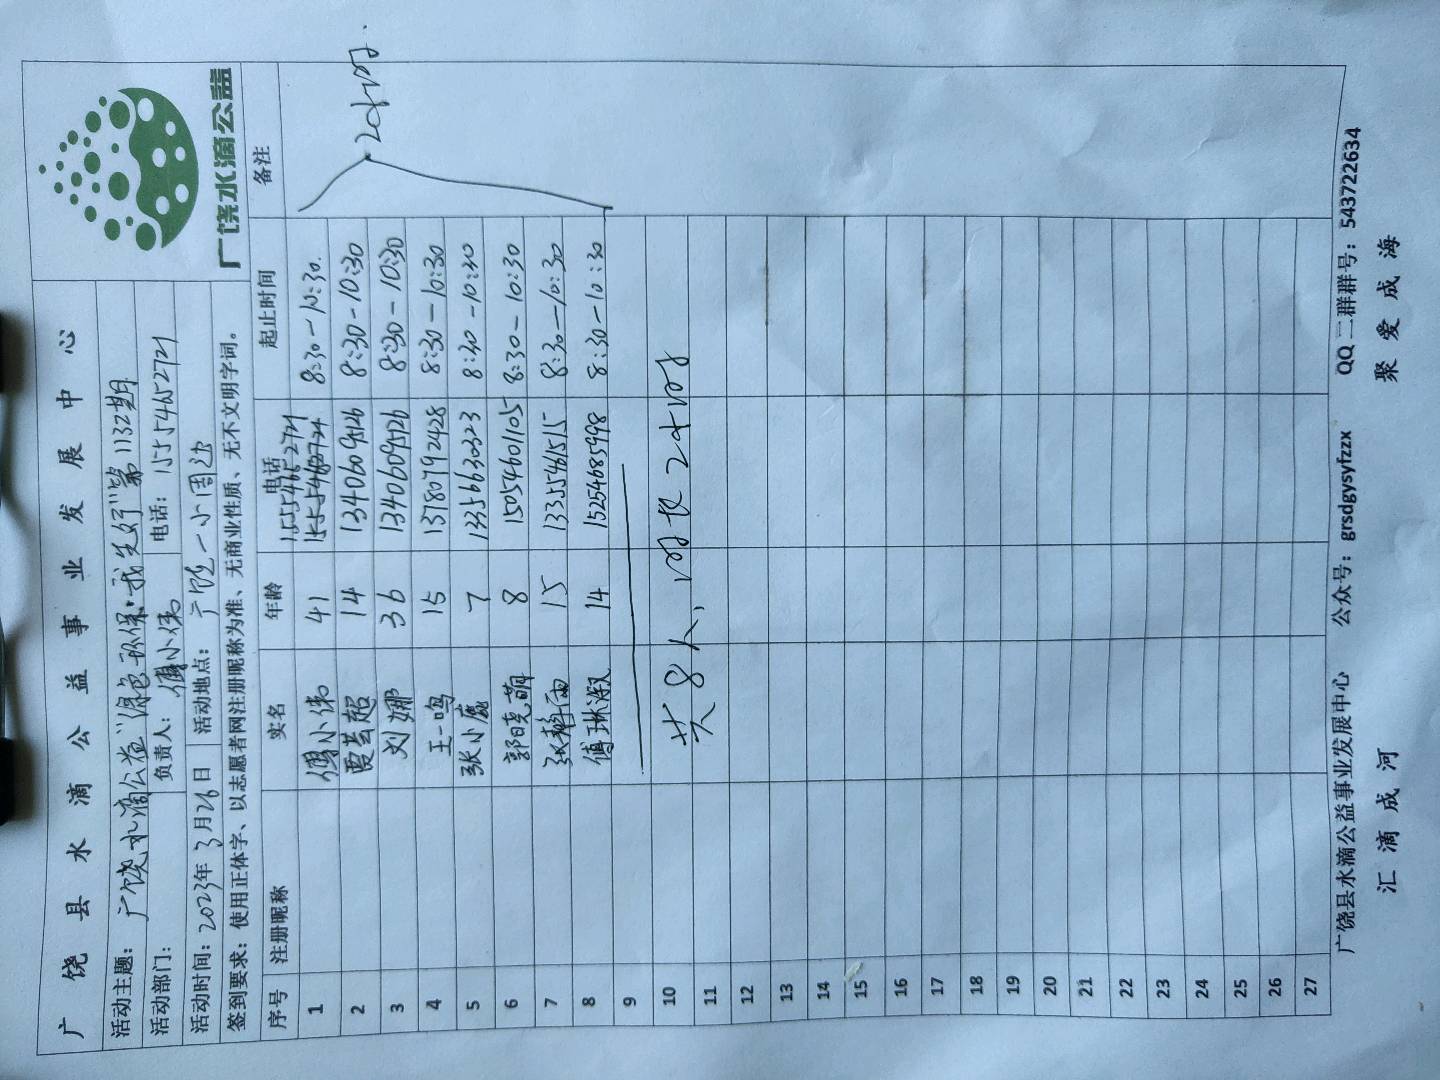 广饶县水滴公益事业发展中心
广饶水滴公益
活动主题：广饶水滴公益“绿色环保·我先行”第1132期
活动部门： 负责人：傅小伟 电话：15554652721
活动时间：2023年3月26日 活动地点：广饶一小周边
签到要求：使用正体字、以志愿者网注册昵称为准、无商业性质、无不文明字词。
序号 注册昵称 实名 年龄 电话 起止时间 备注
1 傅小伟 41 15554652721 8:30-10:30.
2 贾芸超 14 13406095126 8:30-10:30
3 刘娜 36 13406095126 8:30-10:30
4 王一鸣 15 13780792428 8:30-10:30
5 张小鹿 7 13356630323 8:30-10:30
6 郭晓萌 8 15054601105 8:30-10:30
7 15 13355461515 8:30-10:30
8 傅琳淑 14 15254685998 8:30-10:30
2小时.
9
10 共8人，时长2小时
11
12
13
14
15
16
17
18
19
20
21
22
23
24
25
26
27
广饶县水滴公益事业发展中心 公众号：grsdgysyfzzx QQ二群群号：543722634
汇滴成河 聚爱成海